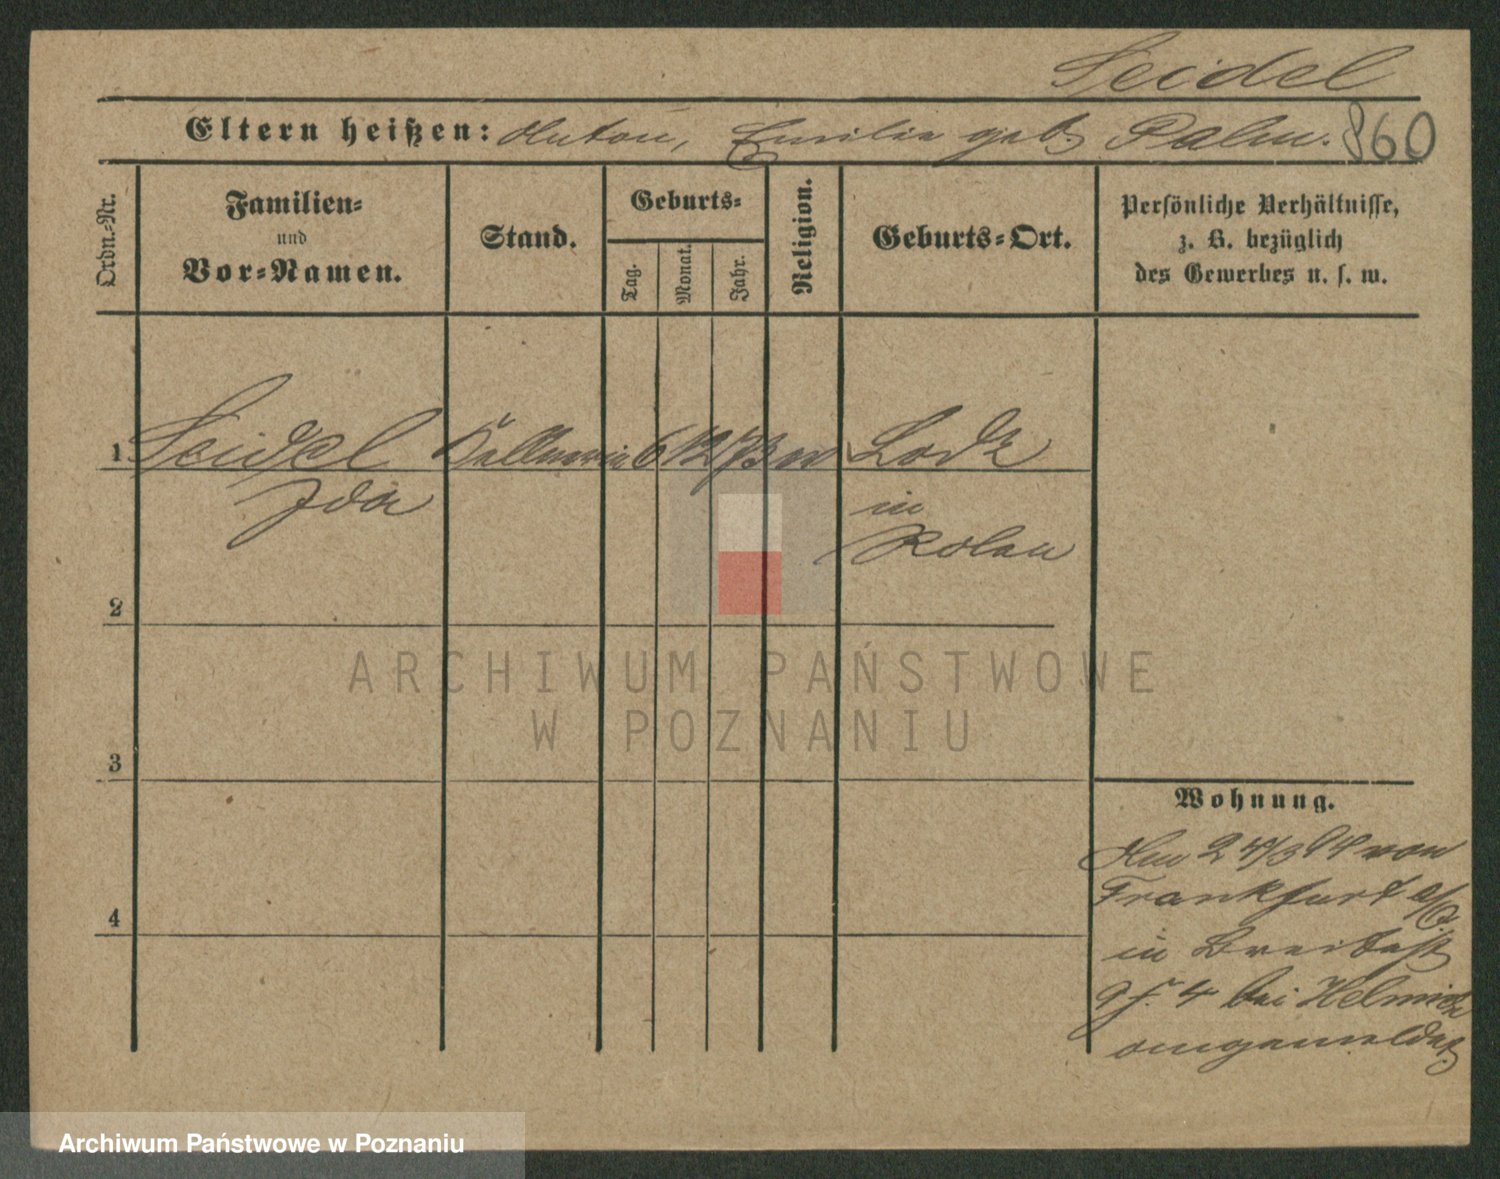 Seidel
Eltern heißen: Anton, Emilie geb. Palm. 860
Ordn.-Nr.
Familien-
und
Vor-Namen.
Stand.
Geburts-
Tag.
Monat.
Jahr.
Religion.
Geburts-Ort.
Persönliche Verhältnisse,
z. B. bezüglich
des Gewerbes u. s. w.
1 Seidel Kellnerin 6 12 73 ev Lodz
Ida in
Polen
2
ARCHIWUM PAŃSTWOWE
W POZNANIU
3
4
Wohnung.
Am 24/3 94 von
Frankfurt a/O.
in Breitestr
9 4 bei Helmich
angemeldet.
Archiwum Państwowe w Poznaniu